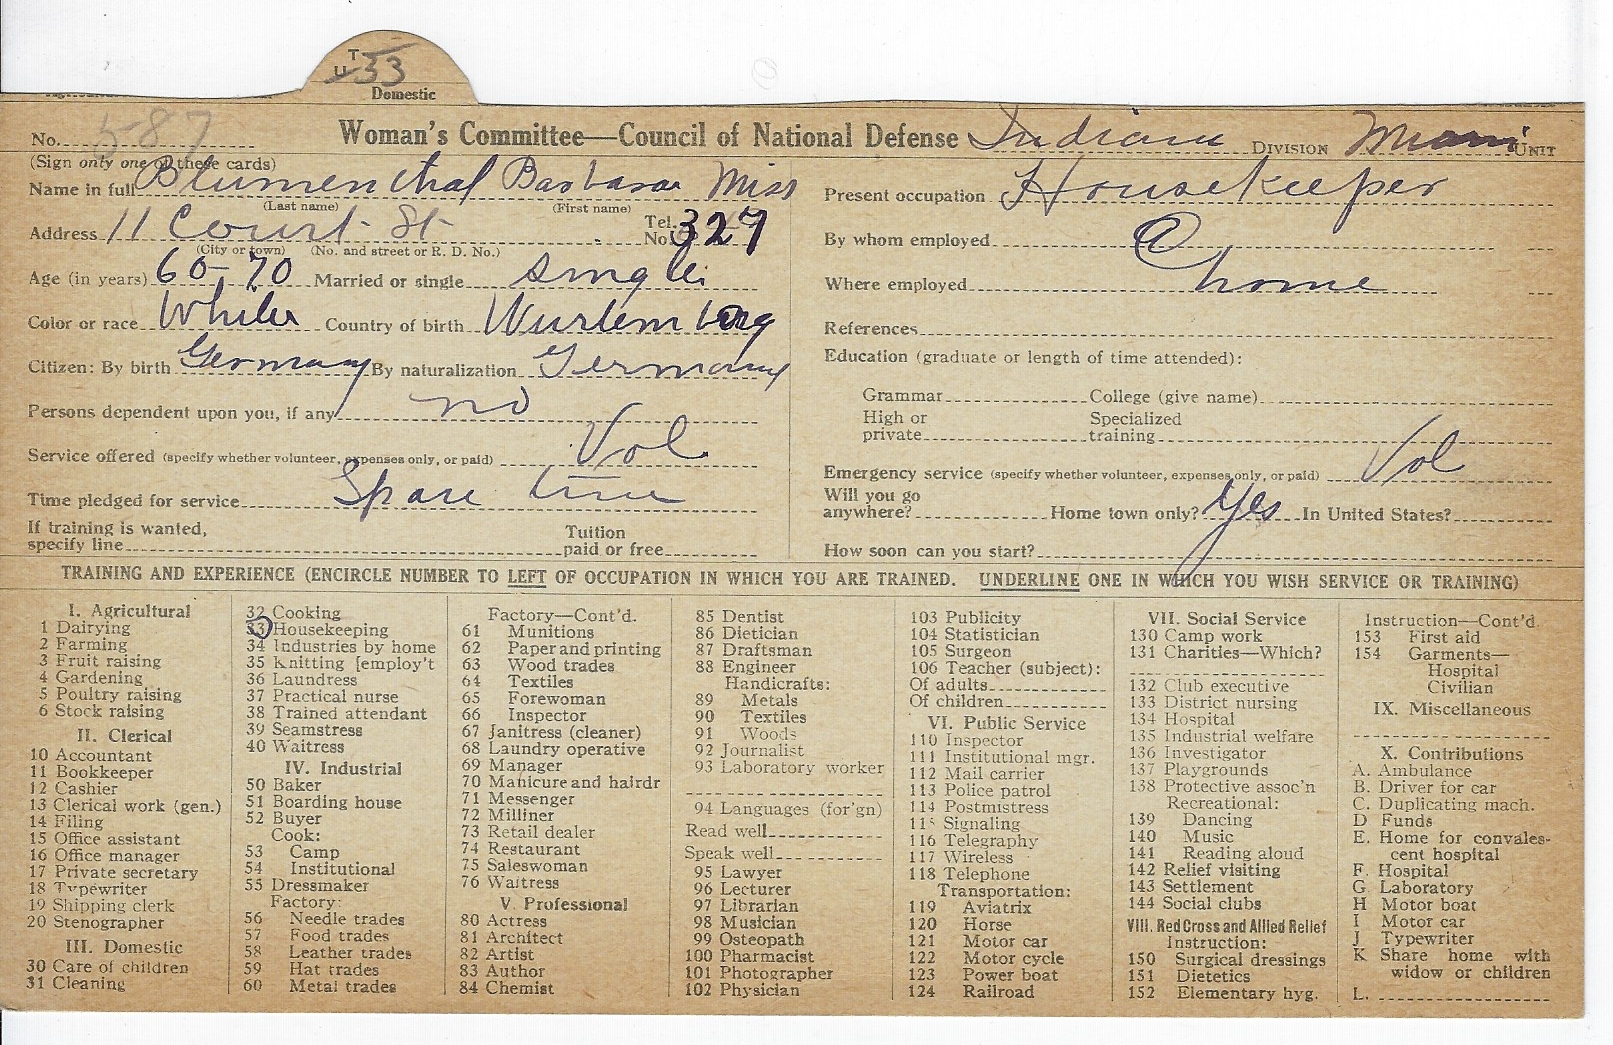 T
U 33
Domestic
No. 587
Woman's Committee—Council of National Defense Indiana DIVISION Miami UNIT
(Sign only one of these cards)
Name in full Blumenthal Barbara Miss
(Last name) (First name)
Address 11 Court St Tel. No. 327
(City or town) (No. and street or R. D. No.)
Age (in years) 60-70 Married or single single
Color or race White Country of birth Wurtemberg
Citizen: By birth Germany By naturalization Germany
Persons dependent upon you, if any no
Service offered (specify whether volunteer, expenses only, or paid) Vol
Time pledged for service Spare time
If training is wanted, specify line Tuition paid or free
Present occupation Housekeeper
By whom employed @
Where employed home
References
Education (graduate or length of time attended):
Grammar College (give name)
High or private Specialized training
Emergency service (specify whether volunteer, expenses only, or paid) Vol
Will you go anywhere? Home town only? Yes In United States?
How soon can you start?
TRAINING AND EXPERIENCE (ENCIRCLE NUMBER TO LEFT OF OCCUPATION IN WHICH YOU ARE TRAINED. UNDERLINE ONE IN WHICH YOU WISH SERVICE OR TRAINING)
I. Agricultural
1 Dairying
2 Farming
3 Fruit raising
4 Gardening
5 Poultry raising
6 Stock raising
II. Clerical
10 Accountant
11 Bookkeeper
12 Cashier
13 Clerical work (gen.)
14 Filing
15 Office assistant
16 Office manager
17 Private secretary
18 Typewriter
19 Shipping clerk
20 Stenographer
III. Domestic
30 Care of children
31 Cleaning
32 Cooking
33 Housekeeping
34 Industries by home
35 Knitting [employ't
36 Laundress
37 Practical nurse
38 Trained attendant
39 Seamstress
40 Waitress
IV. Industrial
50 Baker
51 Boarding house
52 Buyer
Cook:
53 Camp
54 Institutional
55 Dressmaker
Factory:
56 Needle trades
57 Food trades
58 Leather trades
59 Hat trades
60 Metal trades
Factory—Cont'd.
61 Munitions
62 Paper and printing
63 Wood trades
64 Textiles
65 Forewoman
66 Inspector
67 Janitress (cleaner)
68 Laundry operative
69 Manager
70 Manicure and hairdr
71 Messenger
72 Milliner
73 Retail dealer
74 Restaurant
75 Saleswoman
76 Waitress
V. Professional
80 Actress
81 Architect
82 Artist
83 Author
84 Chemist
85 Dentist
86 Dietician
87 Draftsman
88 Engineer
Handicrafts:
89 Metals
90 Textiles
91 Woods
92 Journalist
93 Laboratory worker
94 Languages (for'gn)
Read well
Speak well
95 Lawyer
96 Lecturer
97 Librarian
98 Musician
99 Osteopath
100 Pharmacist
101 Photographer
102 Physician
103 Publicity
104 Statistician
105 Surgeon
106 Teacher (subject):
Of adults
Of children
VI. Public Service
110 Inspector
111 Institutional mgr.
112 Mail carrier
113 Police patrol
114 Postmistress
115 Signaling
116 Telegraphy
117 Wireless
118 Telephone
Transportation:
119 Aviatrix
120 Horse
121 Motor car
122 Motor cycle
123 Power boat
124 Railroad
VII. Social Service
130 Camp work
131 Charities—Which?
132 Club executive
133 District nursing
134 Hospital
135 Industrial welfare
136 Investigator
137 Playgrounds
138 Protective assoc'n
Recreational:
139 Dancing
140 Music
141 Reading aloud
142 Relief visiting
143 Settlement
144 Social clubs
VIII. Red Cross and Allied Relief
Instruction:
150 Surgical dressings
151 Dietetics
152 Elementary hyg.
Instruction—Cont'd.
153 First aid
154 Garments—
Hospital
Civilian
IX. Miscellaneous
X. Contributions
A. Ambulance
B. Driver for car
C. Duplicating mach.
D Funds
E. Home for convales-
cent hospital
F. Hospital
G. Laboratory
H Motor boat
I Motor car
J Typewriter
K Share home with
widow or children
L.